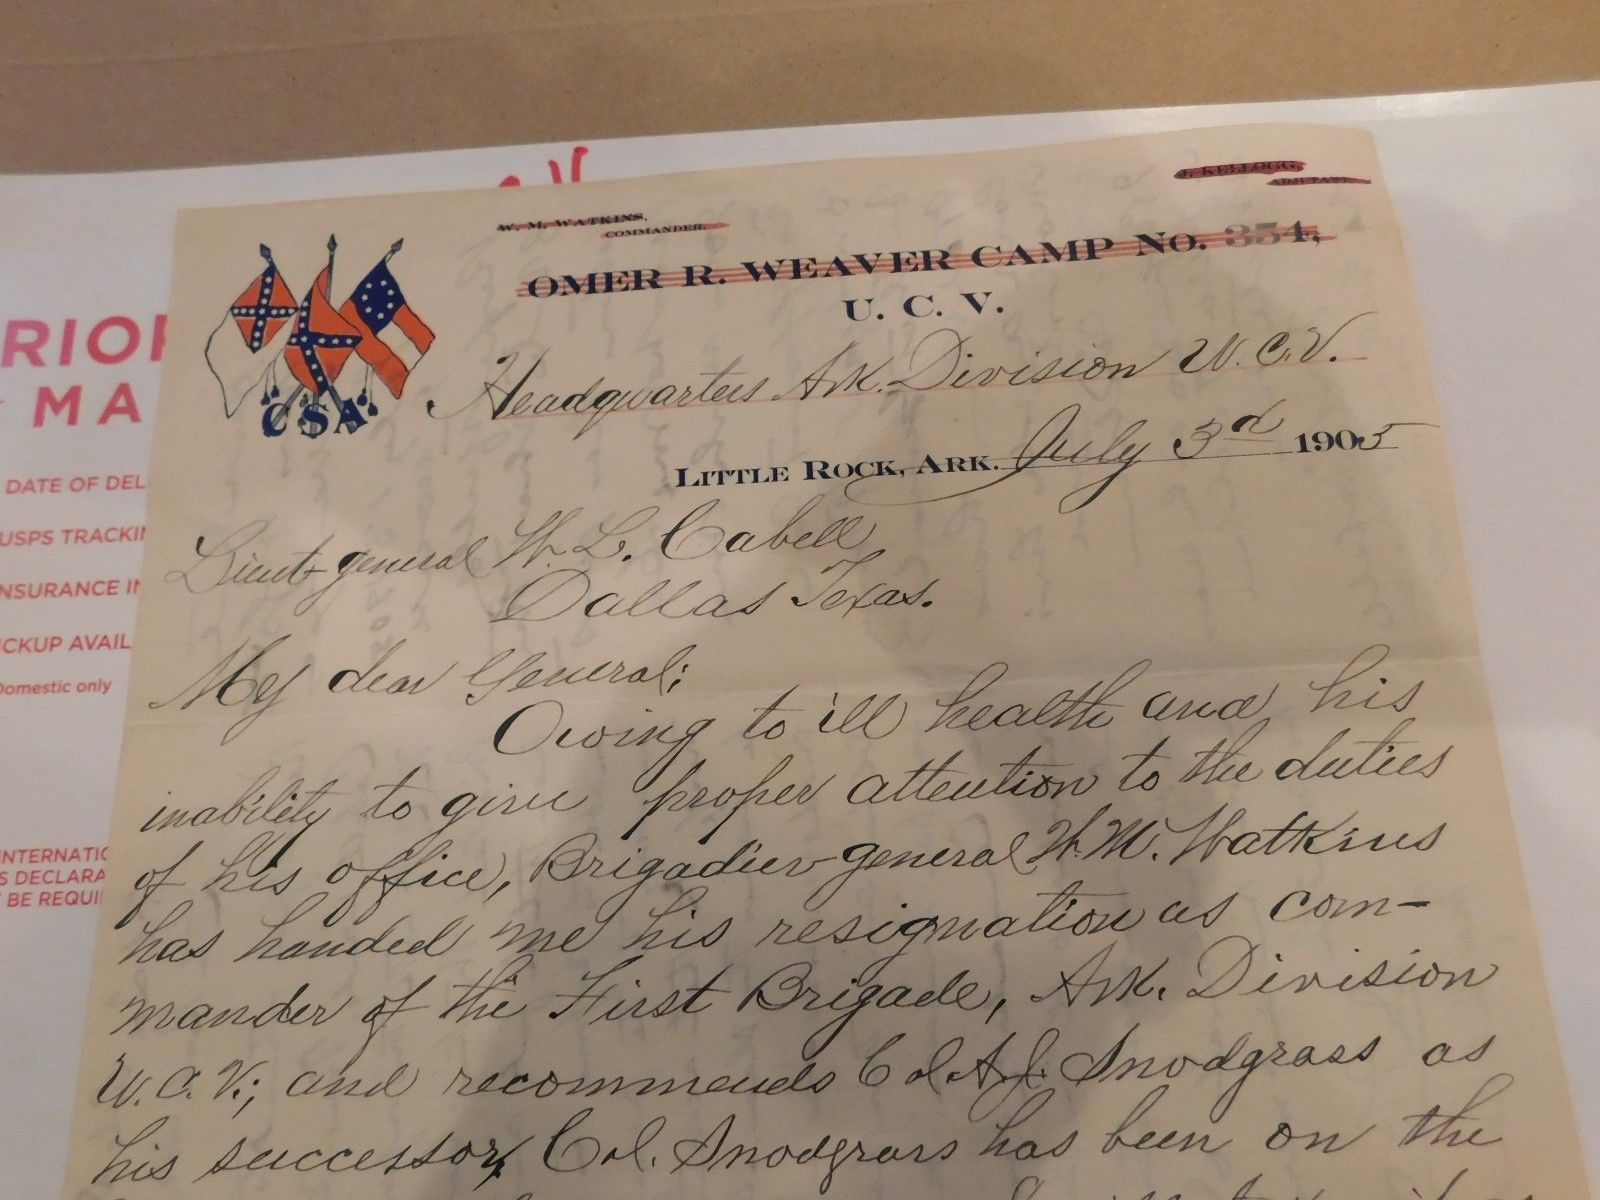 J. KELLOGG,
ADJUTANT.
W. M. WATKINS,
COMMANDER.
OMER R. WEAVER CAMP NO. 354,
U. C. V.
CSA
Headquarters Ark. Division U.C.V.
LITTLE ROCK, ARK. July 3rd 1905
Lieut-general W. L. Cabell,
Dallas Texas.
My dear General;
Owing to ill health and his
inability to give proper attention to the duties
of his office, Brigadier-general W. M. Watkins
has handed me his resignation as com-
mander of the First Brigade, Ark. Division
U.C.V.; and recommends Col. A.J. Snodgrass as
his successor, Col. Snodgrass has been on the
RIOR
MA
DATE OF DEL
USPS TRACKIN
INSURANCE IN
ICKUP AVAIL
Domestic only
INTERNATIO
S DECLARA
BE REQUI